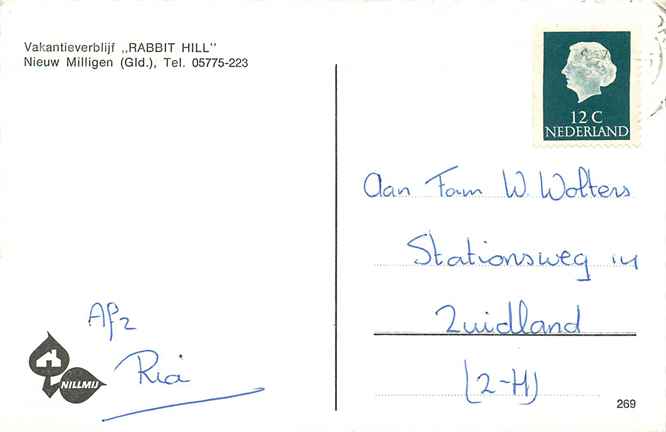 Vakantieverblijf „RABBIT HILL"
Nieuw Milligen (Gld.), Tel. 05775-223
12 C
NEDERLAND
Aan Fam W. Wolters
Stationsweg 14
Zuidland
(Z-H)
Afz
Ria
NILLMIJ
269